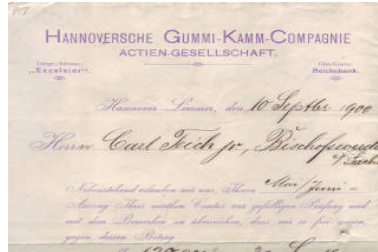 HANNOVERSCHE GUMMI-KAMM-COMPAGNIE
ACTIEN-GESELLSCHAFT.
„Excelsior“.
Reichsbank.
Hannover-Limmer, den 10 Septber 1900
Herrn Carl Teich jr, Bischofswerda
Nebenstehend erlauben wir uns, Ihnen Mai/Juni-
Auszug Ihres werthen Contos zur gefälligen Prüfung und
mit dem Bemerken zu überreichen, dass wir so frei waren,
gegen diesen Betrag